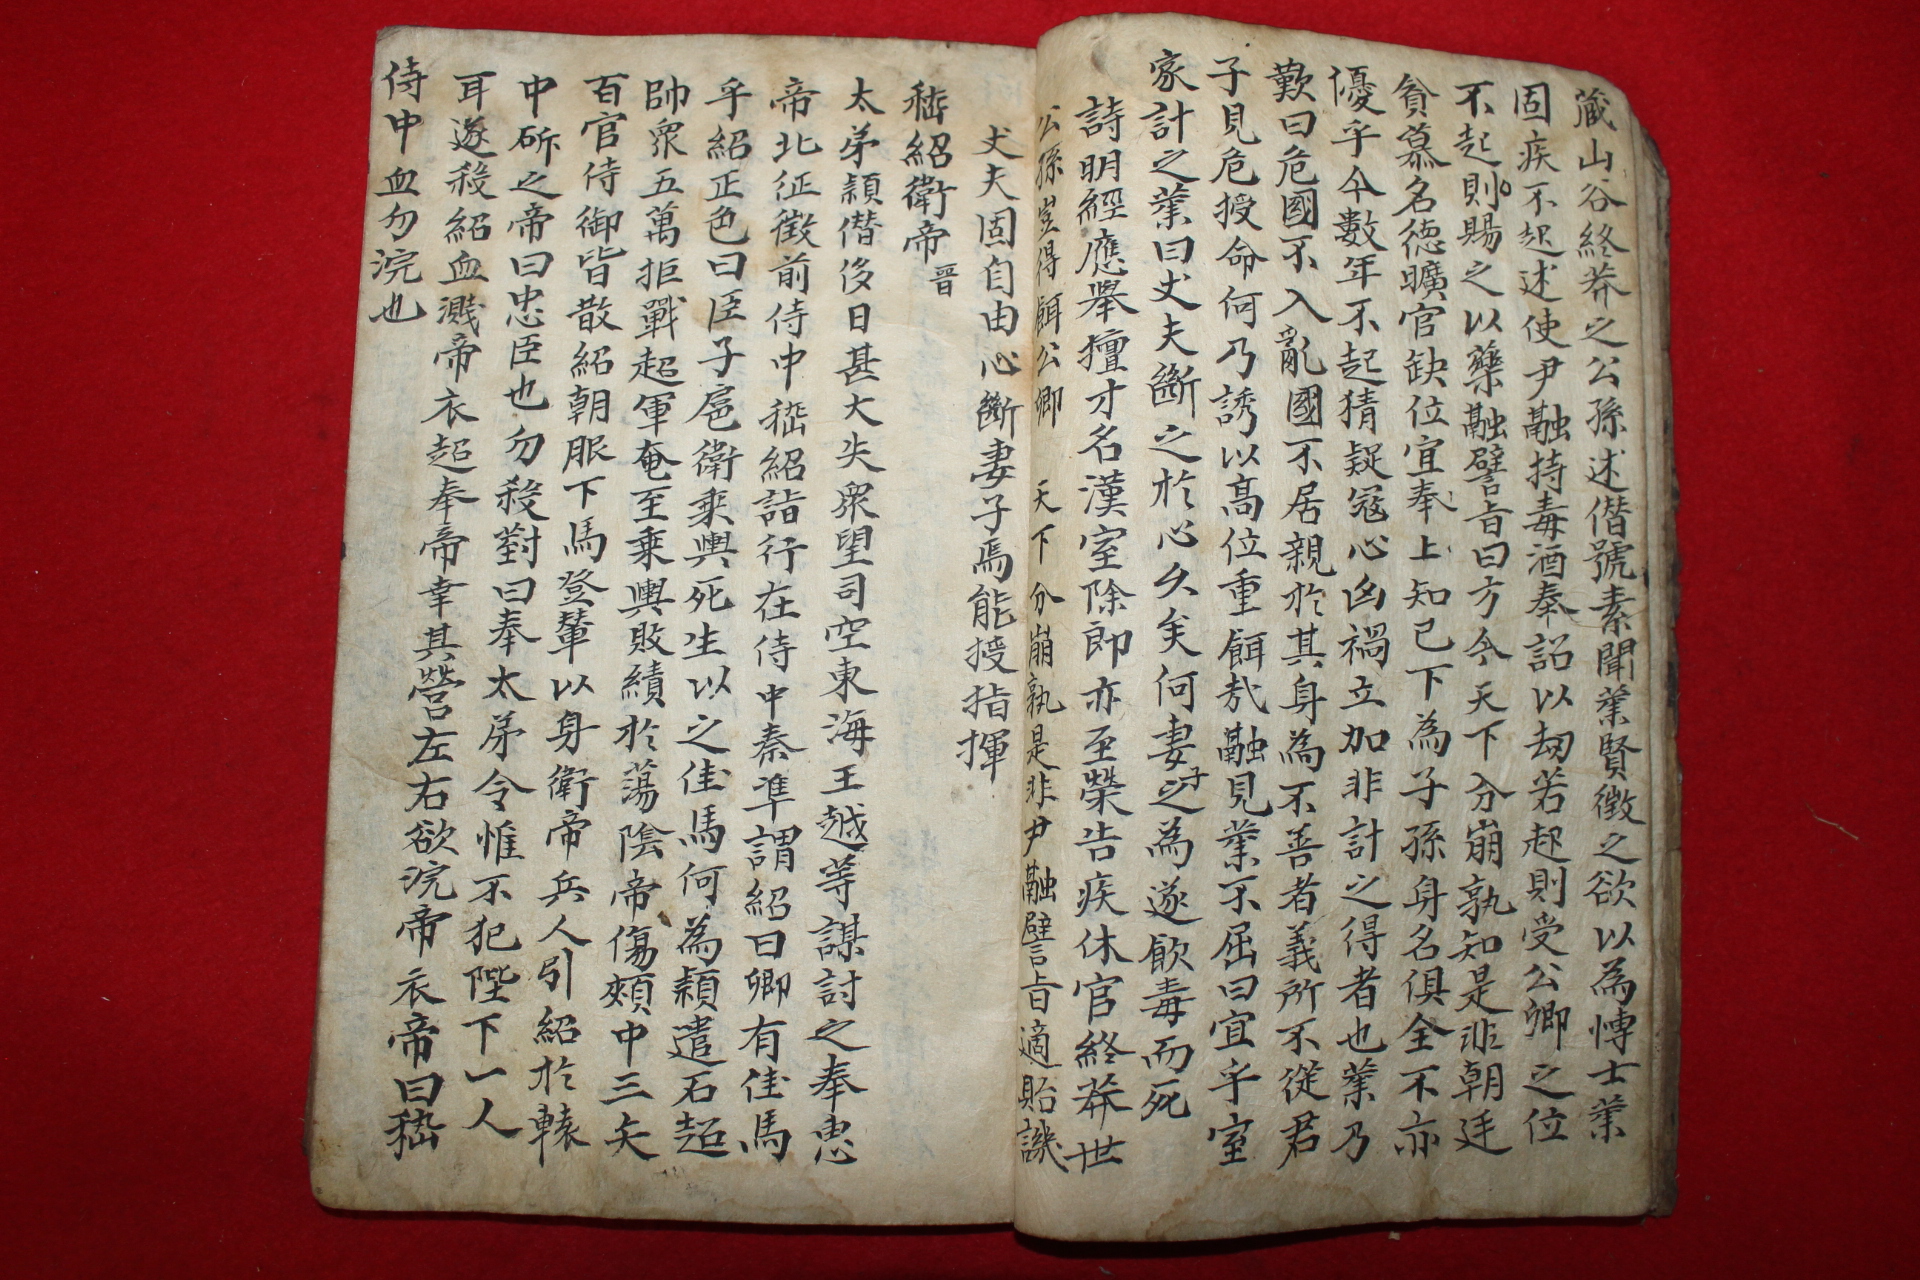 藏山谷終莽之公孫述僭號素聞業賢徵之欲以為博士業
固疾不起述使尹融持毒酒奉詔以刼若起則受公卿之位
不起則賜之以藥融譬旨曰方今天下分崩孰知是非朝廷
貪慕名德曠官缺位宜奉上知己下為子孫身名俱全不亦
優乎今數年不起猜疑冦心凶禍立加非計之得者也業乃
歎曰危國不入亂國不居親於其身為不善者義所不從君
子見危授命何乃誘以高位重餌哉融見業不屈曰宜乎室
家計之業曰丈夫斷之於心久矣何妻子之為遂飮毒而死
詩明經應舉擅才名漢室除郎亦至榮告疾休官終莽世
公孫豈得餌公卿 天下分崩孰是非尹融譬旨適貽譏
丈夫固自由心斷妻子焉能授指揮
嵇紹衛帝 晋
太弟穎僭侈日甚大失衆望司空東海王越等謀討之奉惠
帝北征徵前侍中嵇紹詣行在侍中秦準謂紹曰卿有佳馬
乎紹正色曰臣子扈衛乘輿死生以之佳馬何為穎遣石超
帥衆五萬拒戰超軍奄至乘輿敗績於蕩陰帝傷頰中三矢
百官侍御皆散紹朝服下馬登輦以身衛帝兵人引紹於轅
中斫之帝曰忠臣也勿殺對曰奉太弟令惟不犯陛下一人
耳遂殺紹血濺帝衣超奉帝幸其營左右欲浣帝衣帝曰嵇
侍中血勿浣也